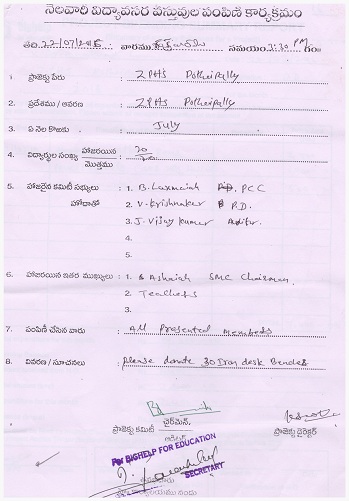 నెలవారి విద్యావసర వస్తువుల పంపిణి కార్యక్రమం
తేది. 22/07/2015 వారము శుక్రవారం సమయం 3:30 PM గం॥
1 ప్రాజెక్టు పేరు : ZPHS Potheipally
2. ప్రదేశము / ఆవరణ : ZPHS Potheipally
3. ఏ నెల కొఱకు : July
4. విద్యార్థుల సంఖ్య హాజరయిన మొత్తము : 30
5. హాజరైన కమిటీ సభ్యులు హోదాతో : 1. B. Laxmaiah PCC
2. V. Krishnaker P.D.
3. J. Vijay kumer Aditur.
4.
5.
6. హాజరయిన ఇతర ముఖ్యులు : 1. Ashaiah SMC Chairman
2. Teachers
3.
7. పంపిణీ చేసిన వారు : All Presented Members
8. వివరణ / సూచనలు : please donate 30 Iron desk Benches
చైర్‌మెన్, ప్రాజెక్టు కమిటీ
ప్రాజెక్టు డైరెక్టర్
For BIGHELP FOR EDUCATION
SECRETARY